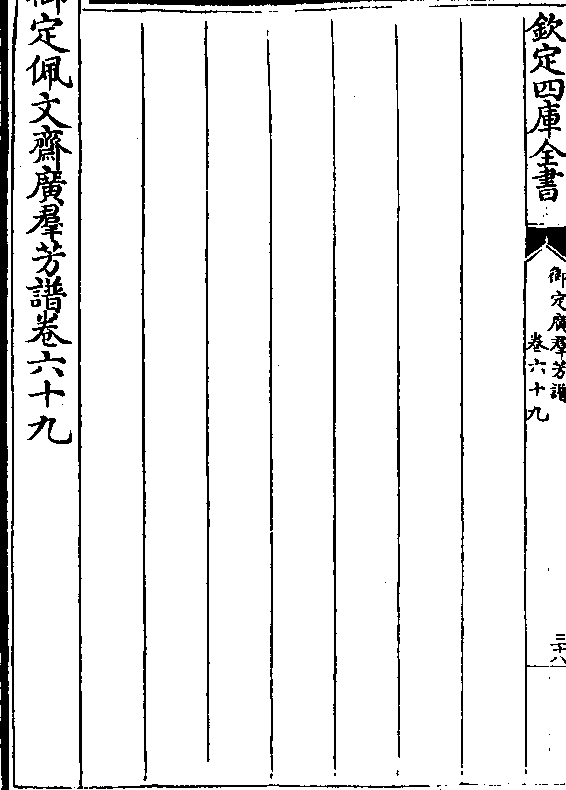 欽定四庫全書
御定廣羣芳譜
卷六十九
三十八
御定佩文齋廣羣芳譜卷六十九